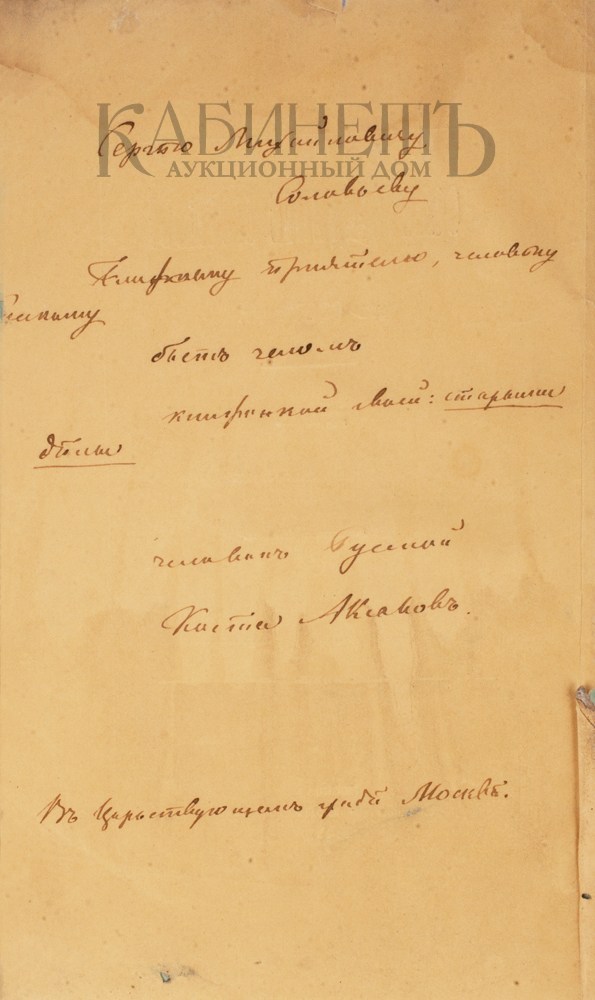 КАБИНЕТЪ
АУКЦИОННЫЙ ДОМ
Сергѣю Михайловичу
Соловьеву
приятелю, человѣку
бьетъ челомъ
книжонкой своей: старыми
человѣкъ Русской
Костя Аксаковъ.
Въ Царьствующемъ градѣ Москвѣ.